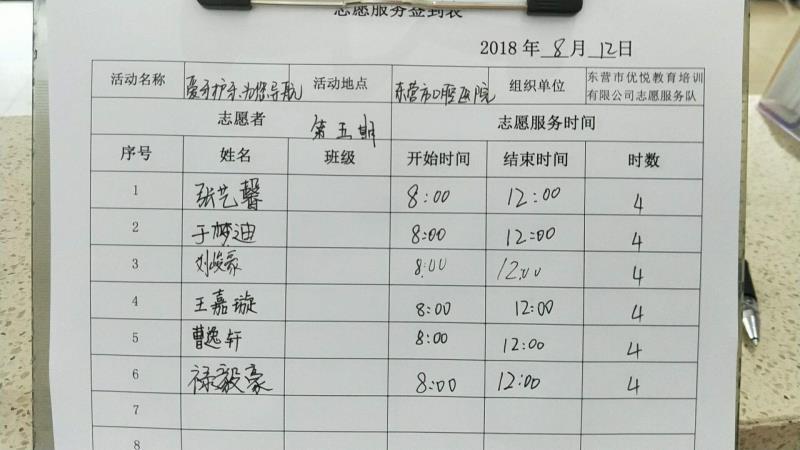 志愿服务签到表
2018 年 8 月 12 日
活动名称 爱牙护牙,为您导航 活动地点 东营市口腔医院 组织单位 东营市优悦教育培训
有限公司志愿服务队
志愿者 第五期 志愿服务时间
序号 姓名 班级 开始时间 结束时间 时数
1 张艺馨 8:00 12:00 4
2 于梦迪 8:00 12:00 4
3 刘峻豪 8:00 12:00 4
4 王嘉璇 8:00 12:00 4
5 曹逸轩 8:00 12:00 4
6 禄毅豪 8:00 12:00 4
7
8